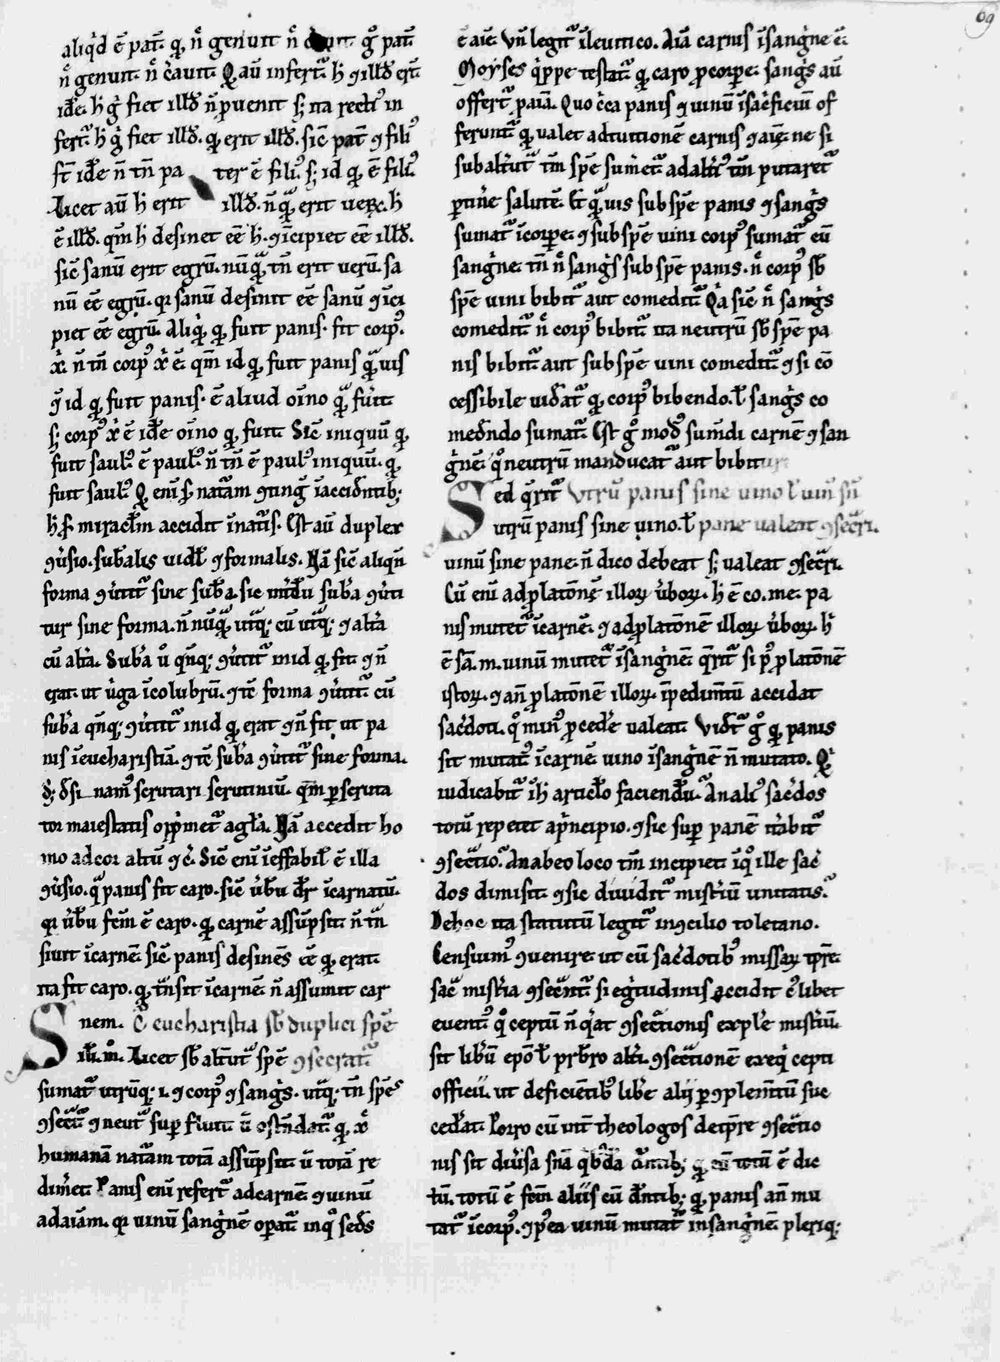 69
aliq̇d ē pat̄. q, n̄ genuit n̄ g̊ pat̄
n̊ genuit. n̄ c̊auit. Q̄ aū infert̄ h̄ ⁊ illđ erit
idē. h̄ g̊ fiet illđ n̄ ꝓuenit s; ita recti᾽ in
fert̄. h̄ g̊ fiet illđ. qđ erit illđ. sic̄ pat̄ ⁊ fili᾽
st̄ idē n̄ tn̄ pa ter ē fili᾽. s; id qđ ē fili᾽.
Licet aū h̄ erit illđ. n̄ qͣ erit uerꝝ. h̄
ē illđ. qm̄ h̄ desinet eē h̄. ⁊ īcipiet eē illđ.
sic̄ sanū erit egrū. nūqͣ tn̄ erit uerū. sa
nū eē egrū. qꝛ sanū desinit eē sanū ⁊ īci
piet eē egrū. Aliq̇, qđ fuit panis. fit corp᾽.
x̄. n̄ tn̄ corp᾽ x̄ ē. qm̄ id qđ fuit panis qͣuis
⁊ id qđ fuit panis. ē aliud oīno qͣ fuit
s; corp᾽ x̄ ē idē oīno qđ fuit. Sic̄ iniquū qđ
fuit saul᾽. ē paul᾽. n̄ tn̄ ē paul᾽ iniquū. qđ
fuit saul᾽. Q̄ eni s̄ natam ⁊ting̊ īaccidntib;
h̄ s̄ miraclm accidit īnatis. Est aū duplex
⁊uˢio. subalis uidl᾽ ⁊ formalis. Nā sic̄ aliqn̄
forma ⁊utit̄ sine suba. sic int̄du suba ⁊uti
tur sine forma. n̄ nūqͣ utͣq; cū utͣq; ⁊ altͣa
cū altͣa. Suba u̇ qn̄q; ⁊utit̄ in id qđ fit ⁊ n̄
erat. ut uirga ī colubrū. ⁊ tē forma ⁊utit̄ cū
suba qn̄q; ⁊utit̄ in id qđ erat ⁊ n̄ fit, ut pa
nis ī eucharistiā. ⁊ tē suba ⁊utit̄ sine forma.
nam᾽ scrutari scrutiniū. qm̄ ꝑscruta
tor maiestatis opp̄met̄ a glͣa. Nā accedit ho
mo ad cor altū ⁊c̄. Sic̄ eni īeffabil᾽ ē illa
⁊uˢio. qͣ panis fit caro. sic̄ ūbū dr̄ īcarnatū.
qꝛ ūbū fcm̄ ē caro. qđ carnē assūpsit. n̄ tn̄
siuit ī carnē. sic̄ panis desinēs eē qđ erat.
ita fit caro. qđ tn̄sit ī carnē n̄ assumit car
nem. Q̄ eucharistia sb̄ duplici spē
Licet sb̄ altͣut̄ spē ⁊secrat̄
sumat̄ utrūq; .i. ⁊ corp᾽ ⁊ sangˢ. utͣq; tn̄ spēs
⁊secat̄ ⁊ neut̄ sup̄ ostn̄dat̄ qđ x̄
humanā natam totā assūpsit. ū totā re
dim̄et. Panis eni refert̄ ad carnē. ⁊ uinū
ad aīam. qꝛ uinū sangnē oꝑat̄ in q̊ sedˢ
ē aīe. Vn̄ legit̄ ī leuitico. Aīa carnis ī sangnē ē.
Moyses q̇ppe testat̄ qđ caro ꝓ corpe. sangˢ aū
offert̄ ꝓ aīa. Quo cͣca panis ⁊ uinū ī sac̊ficiū of
ferunt̄ qđ ualet ad tuitionē carnis ⁊ aīe. ne si
sub altͣut̄ tm̄ spē sumet̄ ad altͣi᾽ tm̄ putaret̄
ꝑtine salutē. Et qͣuis sub spē panis ⁊ sangˢ
sumat̄ ī corpe. ⁊ sub spē uini corp᾽ sumat̄ cū
sangne. tn̄ n̄ sangˢ sub spē panis. n̄ corp᾽ sb̄
spē uini bibit̄ aut comedit̄. Qͣa sic̄ n̄ sangˢ
comedit̄ n̄ corp᾽ bibit̄ ita neutrū sb̄ spē pa
nis bibit̄ aut sub spē uini comedit̄. ⁊ si cō
cessibile uideat̄ qđ corp᾽ bibendo. ł sangˢ co
medndo sumat̄. Est g̊ mod᾽ sumdi carnē ⁊ san
gnē. q̊ neutrū manducat̄ aut bibitur
Sed q̄rit̄ Vtrū panis sine uino ł uin᾽ sn̄
utrū panis sine uino. ł pane ualeat ⁊secri.
uinū sine pane. n̄ dico debeat s; ualeat ⁊secri.
Cū eni ad ꝓlatonē illoꝝ ūboꝝ. h̄ ē co. me. pa
nis mutet̄ ī carnē. ⁊ ad ꝓlatonē illoꝝ ūboꝝ h̄
ē sā. m. uinū mutet̄ ī sangnē. q̄rit̄ si p᾽ ꝓlatonē
istoꝝ. ⁊ an̄ ꝓlatonē illoꝝ. īpedimtū accidat
sacdoti. q̊ min᾽ ꝓcede ualeat. Videt̄ g̊ qđ panis
sit mutat᾽ ī carnē. uino ī sangnē n̄ mutato. Q̇
iudicabit̄ ī h̄ articlo faciendū. An ali᾽ sacdos
totū repetet a pͥncipio. ⁊ sic sup̄ panē itͣabit̄
⁊sectio. An ab eo loco tm̄ incipiet ī q̊ ille sac
dos dimisit. ⁊ sic diuidit̄ mistiū unitatis.
De hoc ita statutū legit̄ in ⁊cilio toletano.
Censuim᾽ ⁊uenire ut cū sacdotib᾽ missaꝝ tp̄re
sac̄ mistia ⁊secnt̄ si egtudinis accidit c᾽libet
euent᾽ q̊ ceptū n̄ q̇at ⁊sectionis exple mistiū.
sit libū ep̄o ł prb̄ro altͣi. ⁊sectionē exeq̇ cepti
officii. ut deficientib᾽ libe alij ꝑ ⁊plemtū sue
cedat. Porro cū int̄ theologos de tp̄re ⁊sectio
nis sit diuˢa snā q̇bdā cū totū ē dic
tū. totū ē fcm̄ aliis eū dn̄tib; qđ panis an̄ mu
tat̄ ī corp᾽. ⁊ p᾽ea uinū mutat̄ in sangnē. pleriq;